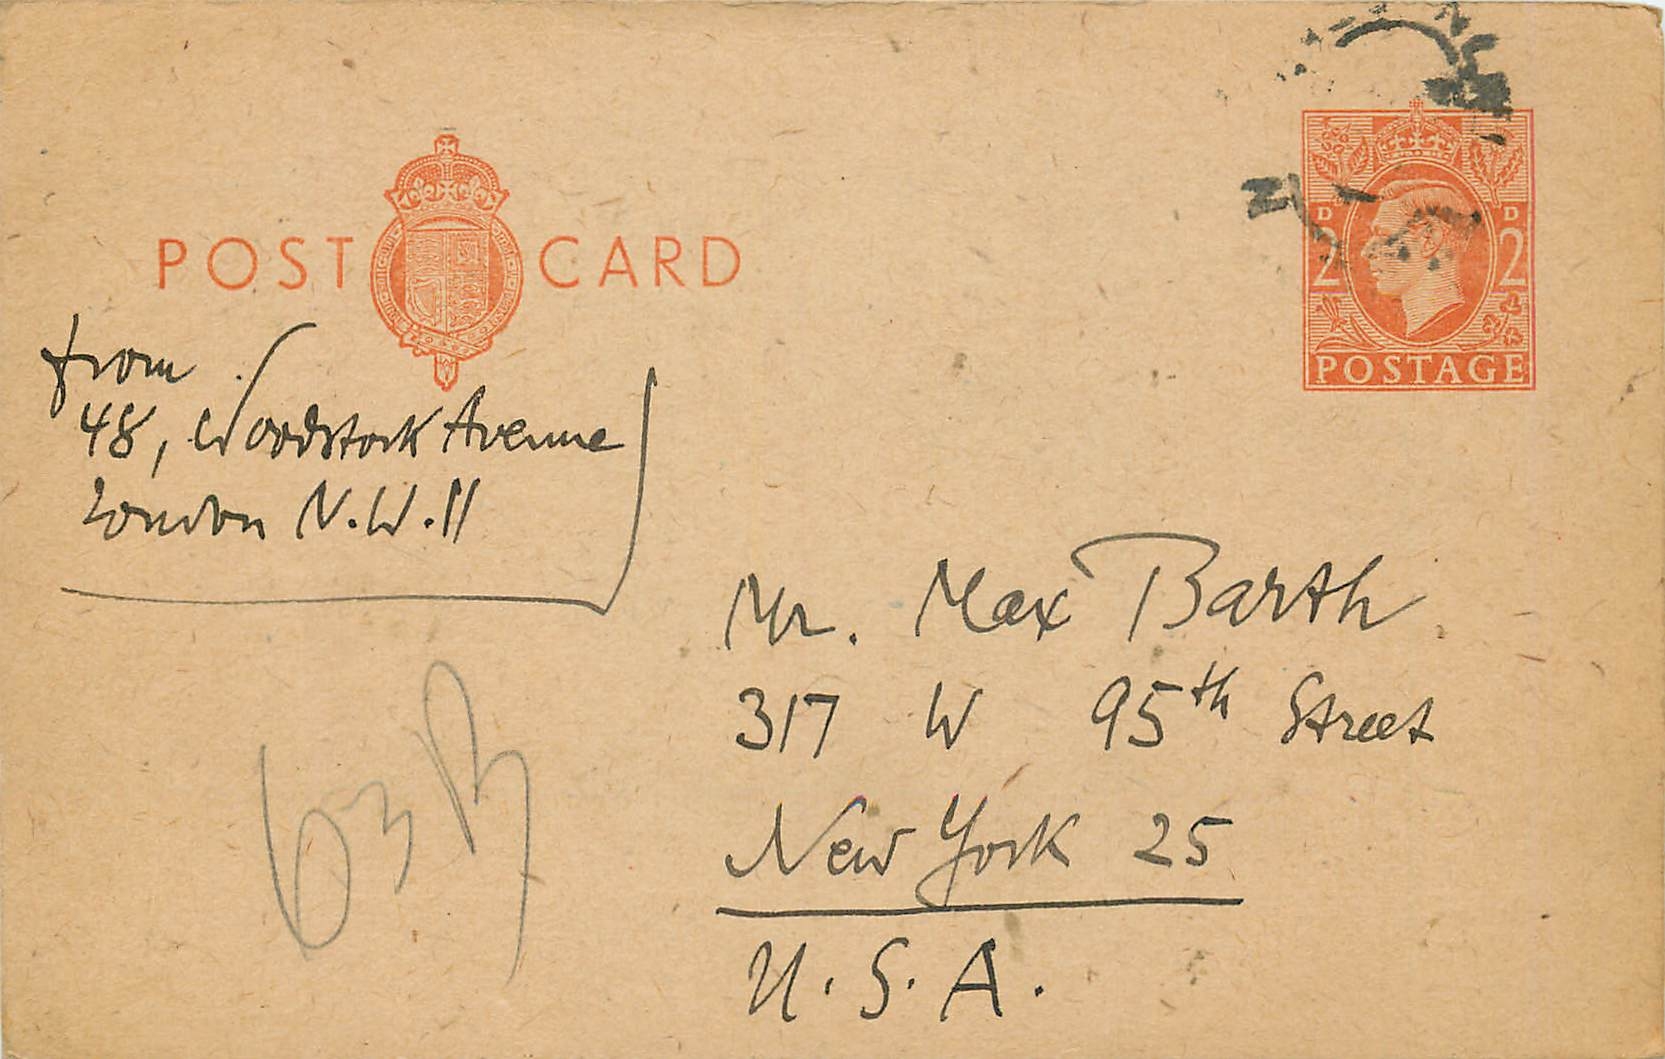 POST CARD
D D
2 2
POSTAGE
from
48, Woodstock Avenue
London N.W.11
Mr. Max Barth
317 W 95th Street
New York 25
U.S.A.